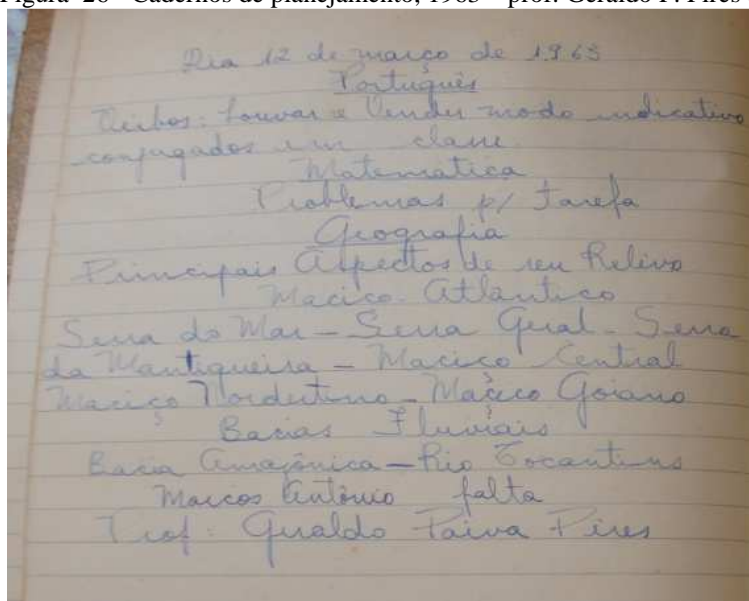 Figura 26 - Cadernos de planejamento, 1963 - prof. Geraldo P. Pires
Dia 12 de março de 1963
Português
Verbos: Louvar e Vender modo indicativo
conjugados em classe
Matemática
Problemas p/ tarefa
Geografia
Principais Aspectos de seu Relevo
Maciço Atlântico
Serra do Mar - Serra Geral - Serra
da Mantiqueira - Maciço Central
Maciço Nordestino - Maciço Goiano
Bacias Fluviais
Bacia Amazônica - Rio Tocantins
Marcos Antônio falta
Prof: Geraldo Paiva Pires